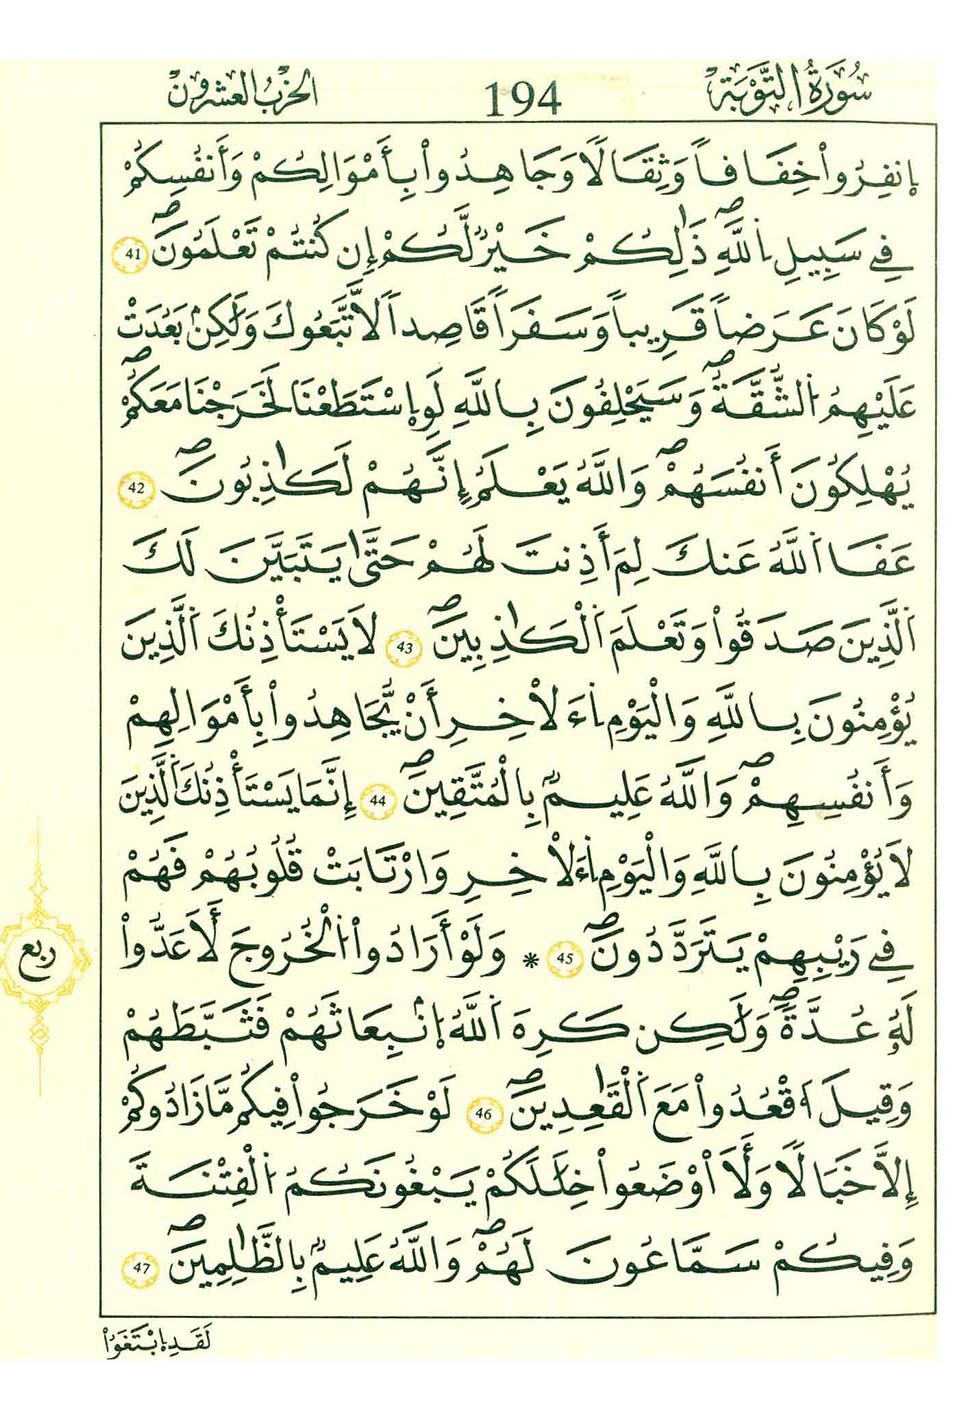 سُورَةُ التَّوْبَةِ 194 الحِزْبُ العِشْرُونَ
اِنفِرُواْ خِفَافاً وَثِقَالًا وَجَاهِدُواْ بِأَمْوَالِكُمْ وَأَنفُسِكُمْ
فِے سَبِيلِ اِللَّهِۖ ذَٰلِكُمْ خَيْرٞ لَّكُمْ إِن كُنتُمْ تَعْلَمُونَۖ 41
لَوْ كَانَ عَرَضاً قَرِيباً وَسَفَراً قَاصِداً لَّاتَّبَعُوكَ وَلَٰكِنۢ بَعُدَتْ
عَلَيْهِمُ اُلشُّقَّةُۖ وَسَيَحْلِفُونَ بِاللَّهِ لَوِ اِسْتَطَعْنَا لَخَرَجْنَا مَعَكُمْۖ
يُهْلِكُونَ أَنفُسَهُمْۖ وَاللَّهُ يَعْلَمُ إِنَّهُمْ لَكَٰذِبُونَۖ 42
عَفَا اَللَّهُ عَنكَ لِمَ أَذِنتَ لَهُمْ حَتَّىٰ يَتَبَيَّنَ لَكَ
اَلَّذِينَ صَدَقُواْ وَتَعْلَمَ اَلْكَٰذِبِينَۖ 43 لَا يَسْتَأْذِنُكَ اَلَّذِينَ
يُؤْمِنُونَ بِاللَّهِ وَالْيَوْمِ اِءَلْاخِرِ أَنْ يُّجَاهِدُواْ بِأَمْوَالِهِمْ
وَأَنفُسِهِمْۖ وَاللَّهُ عَلِيمُۢ بِالْمُتَّقِينَۖ 44 إِنَّمَا يَسْتَأْذِنُكَ اَلَّذِينَ
لَا يُؤْمِنُونَ بِاللَّهِ وَالْيَوْمِ اِءَلْاخِرِ وَارْتَابَتْ قُلُوبُهُمْ فَهُمْ
فِے رَيْبِهِمْ يَتَرَدَّدُونَۖ 45 * وَلَوْ أَرَادُواْ اُلْخُرُوجَ لَأَعَدُّواْ
لَهُۥ عُدَّةًۖ وَلَٰكِن كَرِهَ اَللَّهُ اُنۢبِعَاثَهُمْ فَثَبَّطَهُمْ
وَقِيلَ اَقْعُدُواْ مَعَ اَلْقَٰعِدِينَۖ 46 لَوْ خَرَجُواْ فِيكُم مَّا زَادُوكُمْ
إِلَّا خَبَالًا وَلَأَاوْضَعُواْ خِلَٰلَكُمْ يَبْغُونَكُمُ اُلْفِتْنَةَ
وَفِيكُمْ سَمَّاعُونَ لَهُمْۖ وَاللَّهُ عَلِيمُۢ بِالظَّٰلِمِينَۖ 47
ربع
لَقَدِ اِبْتَغَوُاْ